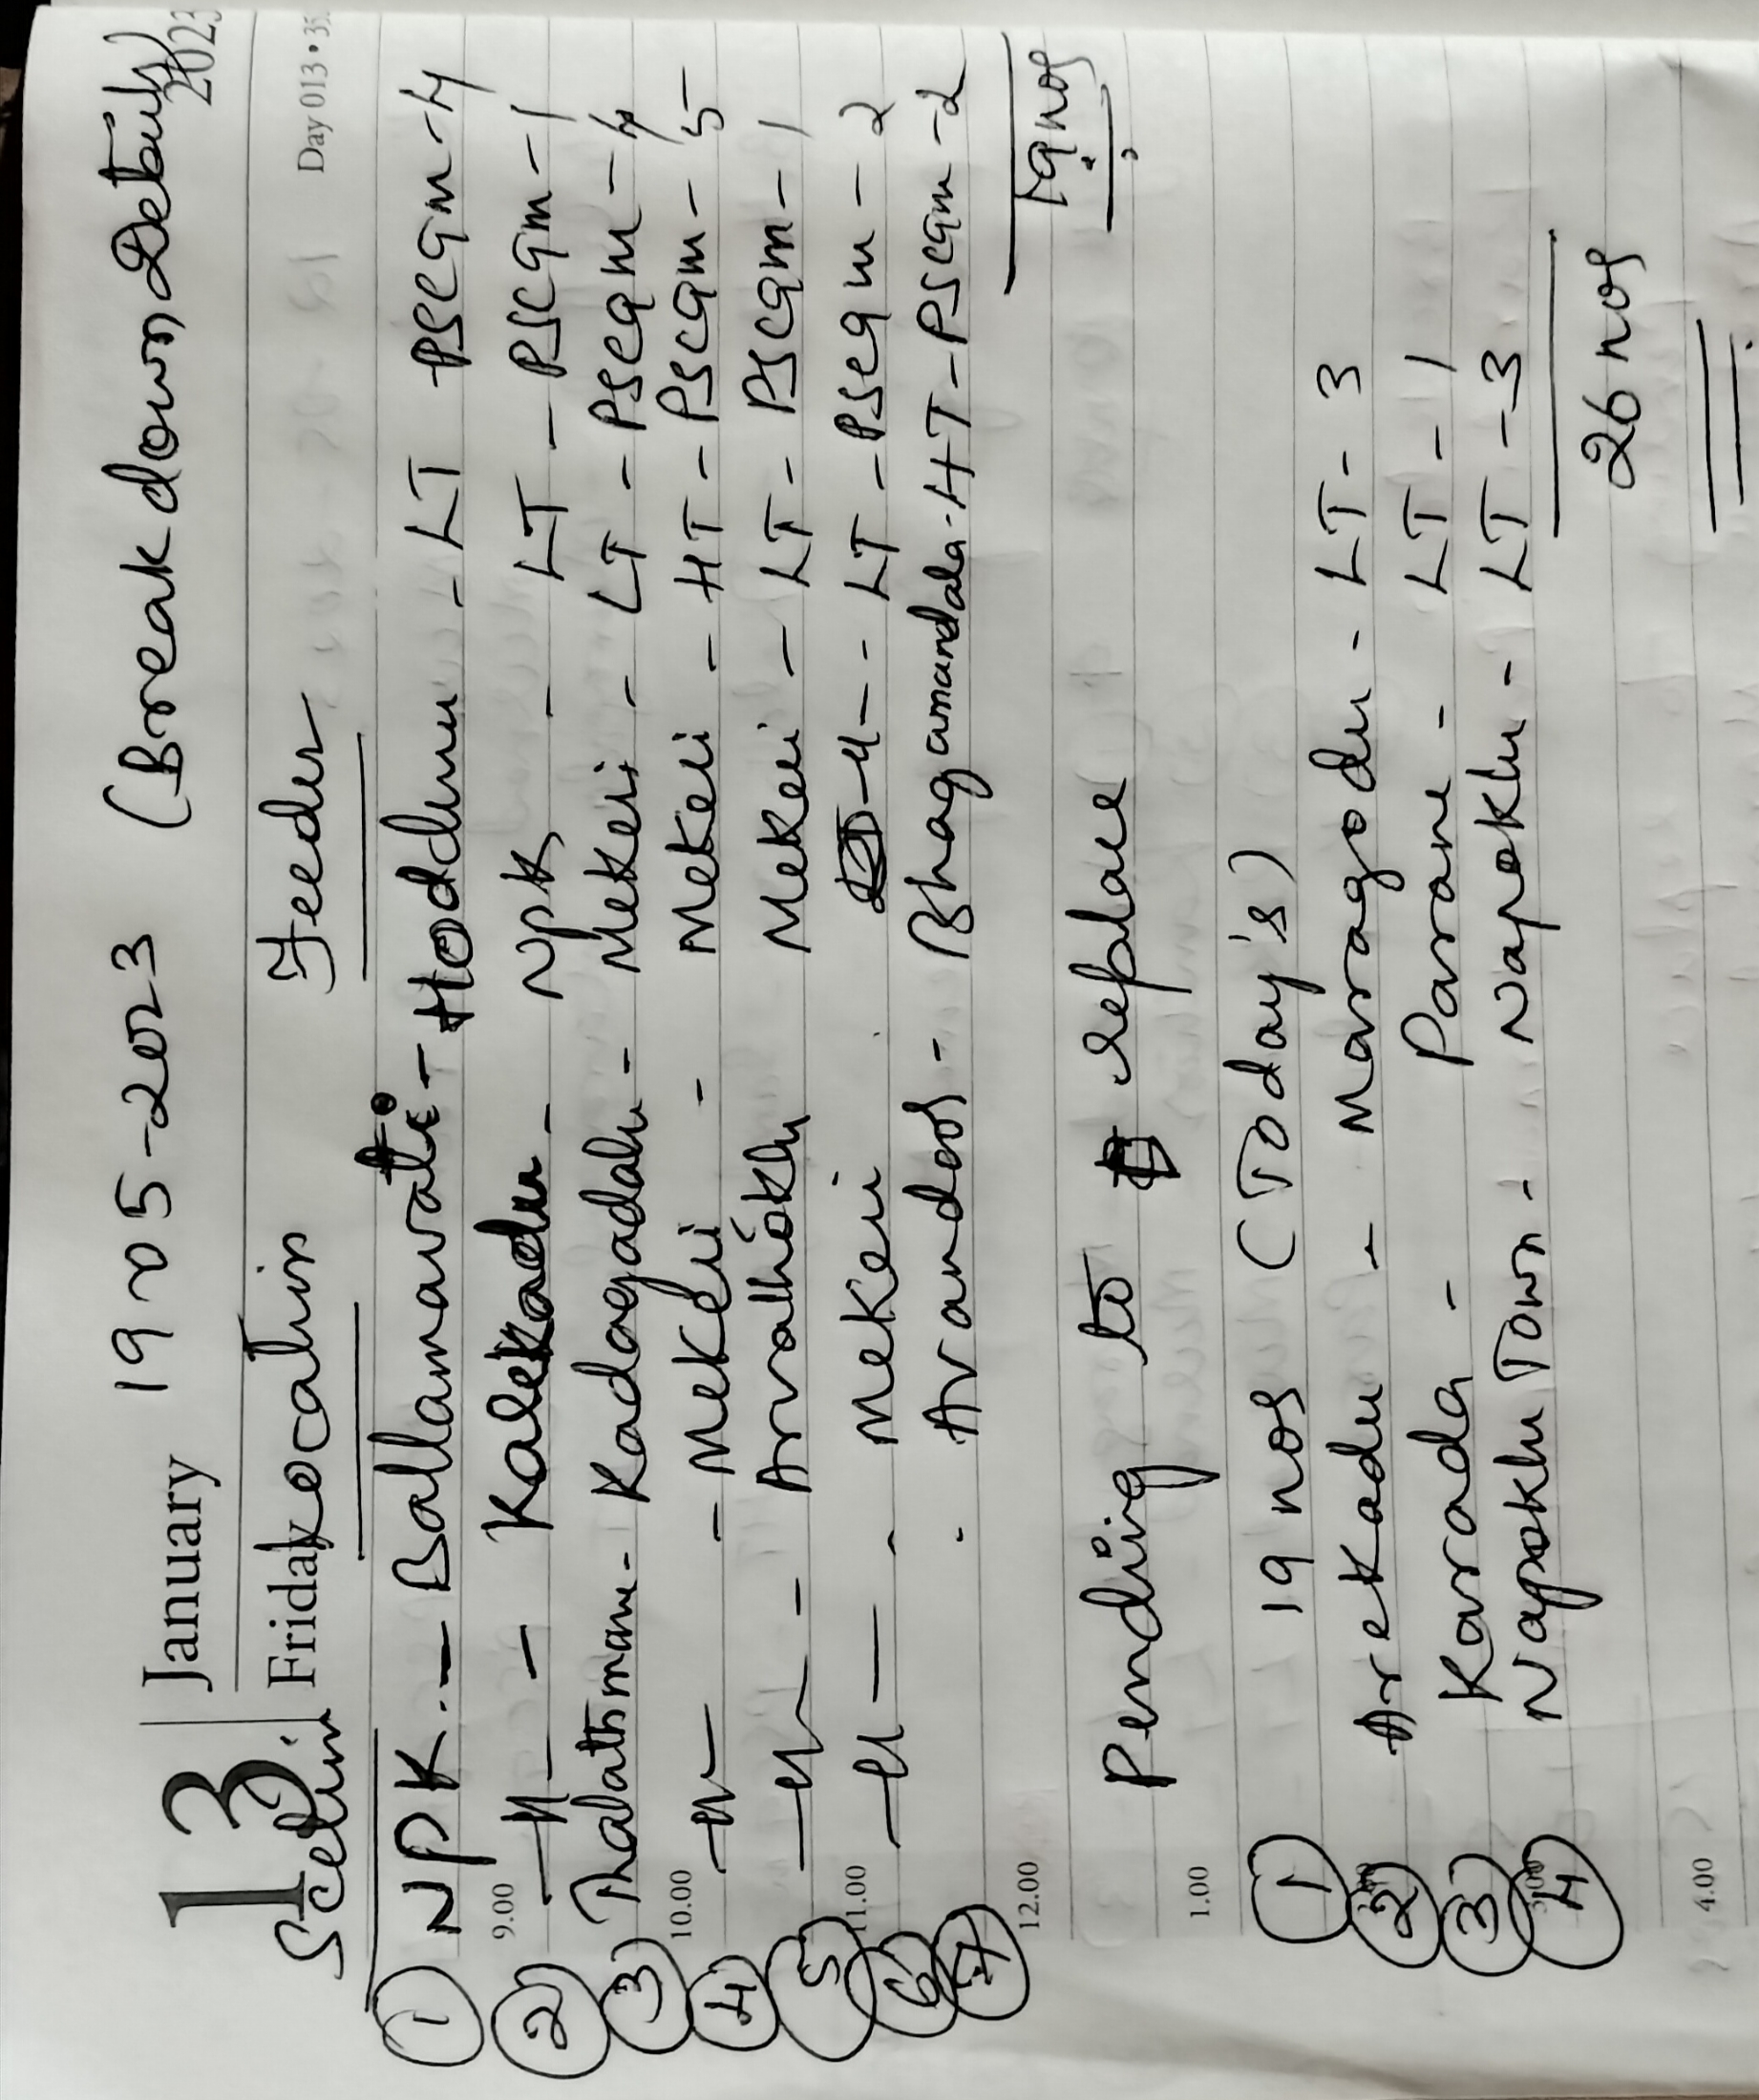 13 January 19-05-2023 (Break down Details)
2023
Friday Location Feeder Day 013•35
Section
① NPK - Ballamavati - Hoddur - LT PSCQM-4
9.00
② -"- - Kalekadu - NPK - LT - PSCQM-1
③ Thalathmane - Kadagadalu - Mekeri - LT - PSCQM-4
10.00
④ -"- - Mekeri - Mekeri - HT - PSCQM-5
⑤ -"- - Arvathoklu Mekeri - LT - PSCQM-1
11.00
⑥ -"- - Mekeri -"- - LT - PSCQM-2
⑦ - Avandos - Bhagamandala-HT-PSCQM-2
12.00
19 nos
Pending to replace
1.00
① 19 nos (Today's)
② Arekadu - Maragodu - LT-3
③ Karada - Parane - LT-1
④ Napoklu Town - Napoklu - LT-3
26 nos
4.00